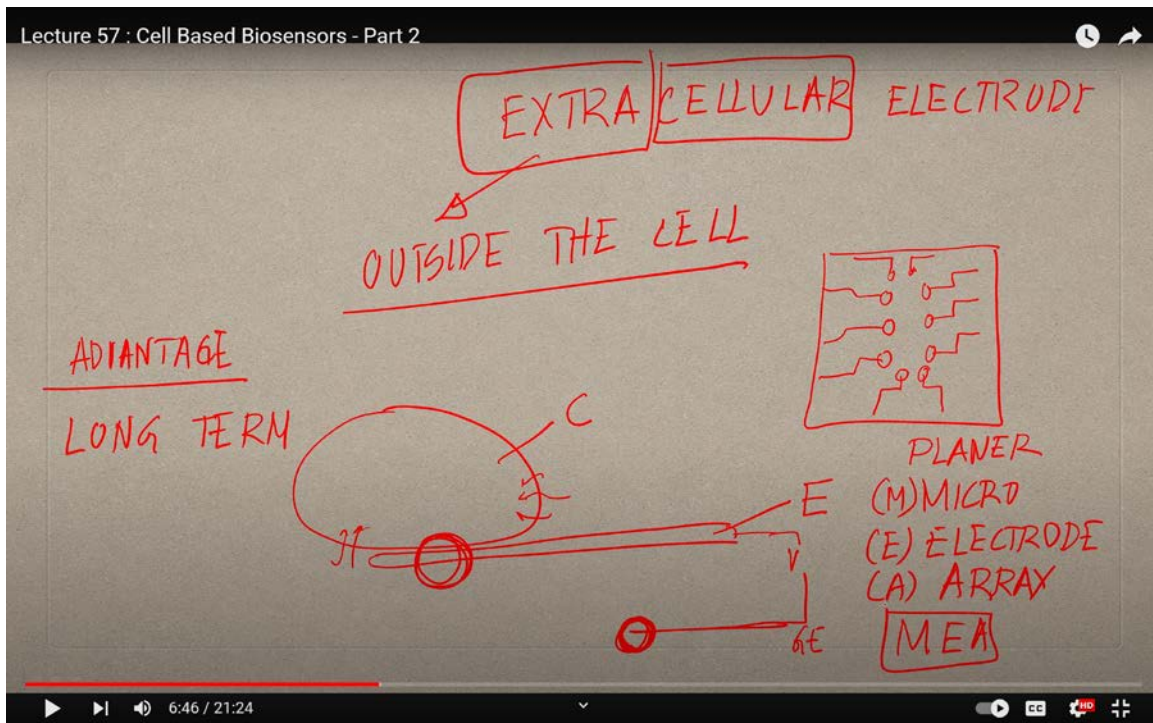 Lecture 57 : Cell Based Biosensors - Part 2
EXTRA CELLULAR ELECTRODE
OUTSIDE THE CELL
ADIANTAGE
LONG TERM
C
E
V
PLANER
(M) MICRO
(E) ELECTRODE
(A) ARRAY
MEA
6:46 / 21:24
CC
HD